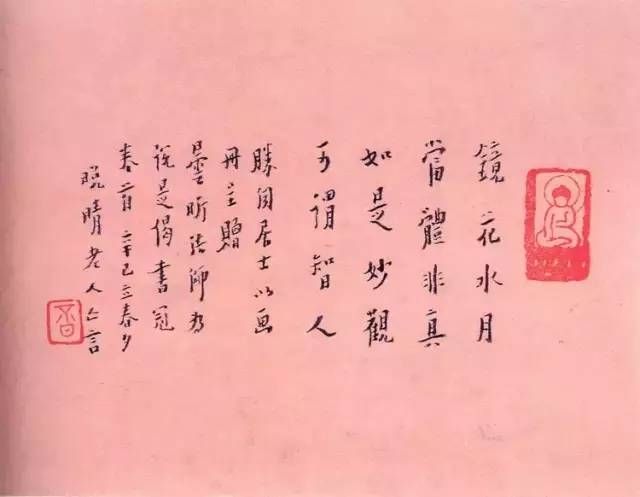 鏡花水月
當體非真
如是妙觀
可謂智人
勝聞居士以画
冊呈贈
曇昕法師為
說是偈書冠
卷首 辛巳立春夕
晚晴老人亡言